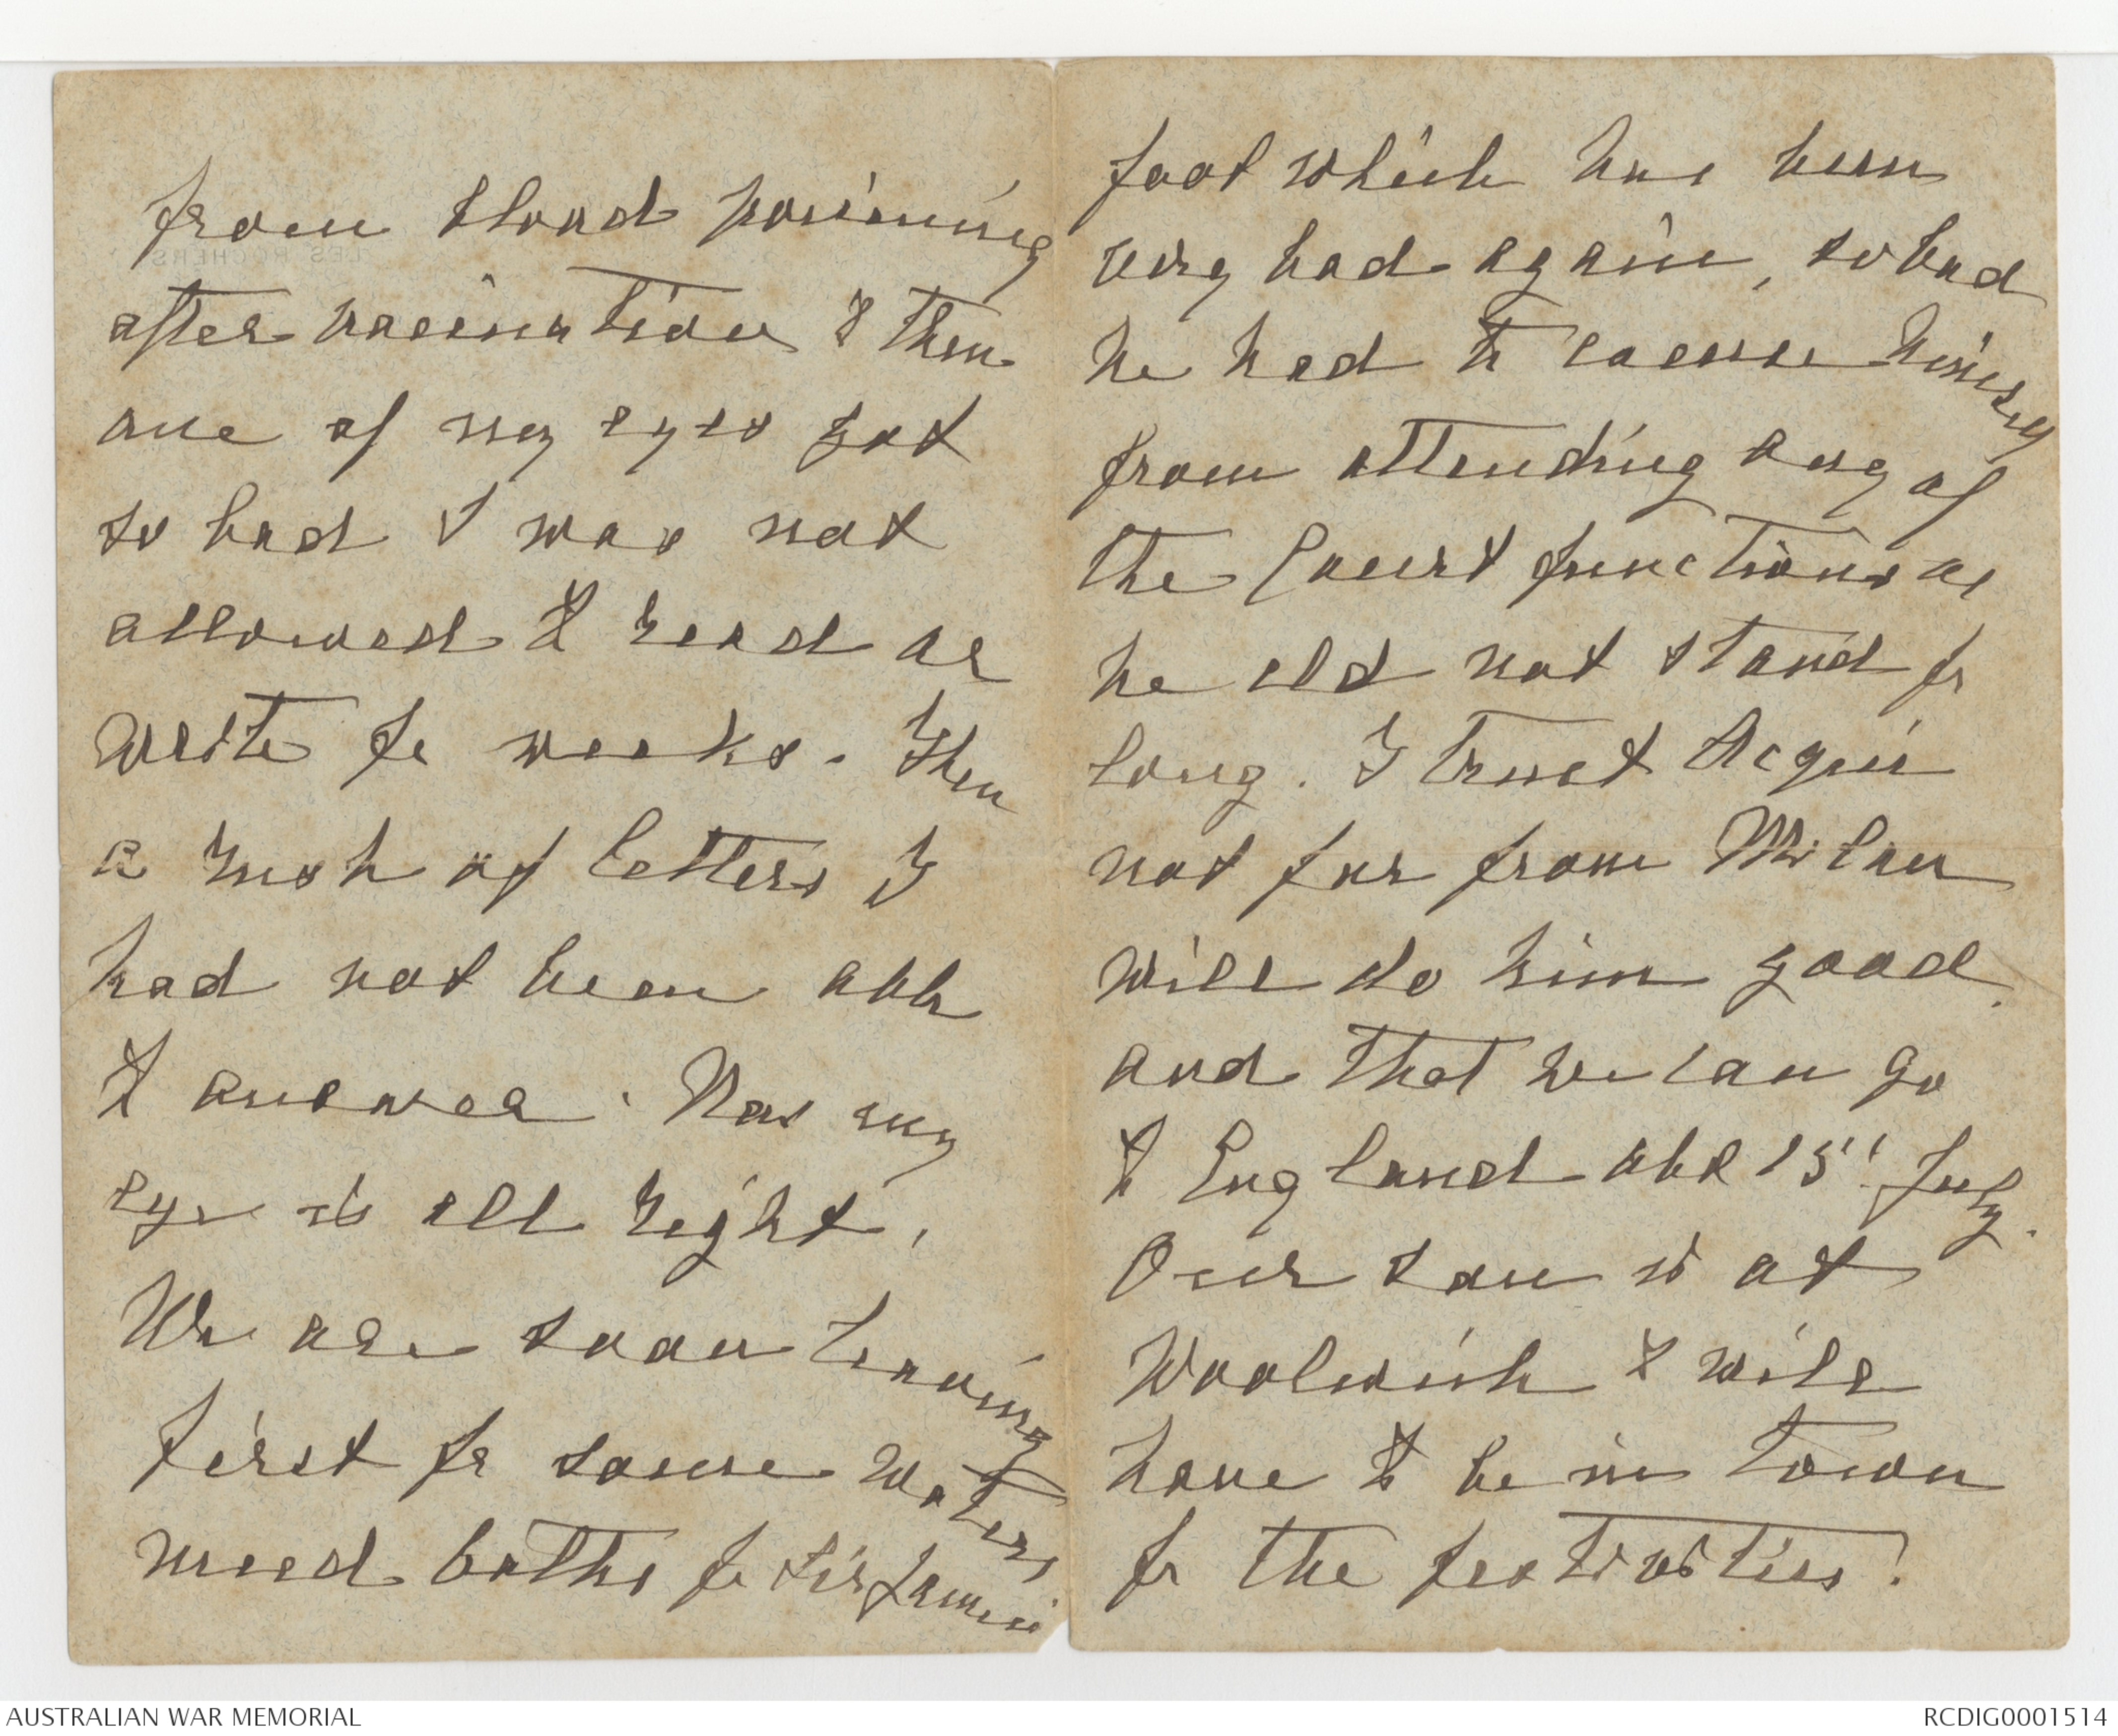 from blood poisoning
after vaccination & then
one of my eyes got
so bad I was not
allowed to read or
write for weeks. Then
a rush of letters I
had not been able
to answer. Now my
eye is all right.
We are soon leaving
first for some waters
mud baths for Sir Francis'
foot which has been
very bad again, so bad
he had to excuse himself
from attending any of
the Court functions as
he cld not stand for
long. I trust Acqui
not far from Milan
will do him good.
and that we can go
to England abt 15' July.
Our son is at
Woolwich & will
have to be in town
for the festivities.
LES ROCHERS
AUSTRALIAN WAR MEMORIAL
RCDIG0001514